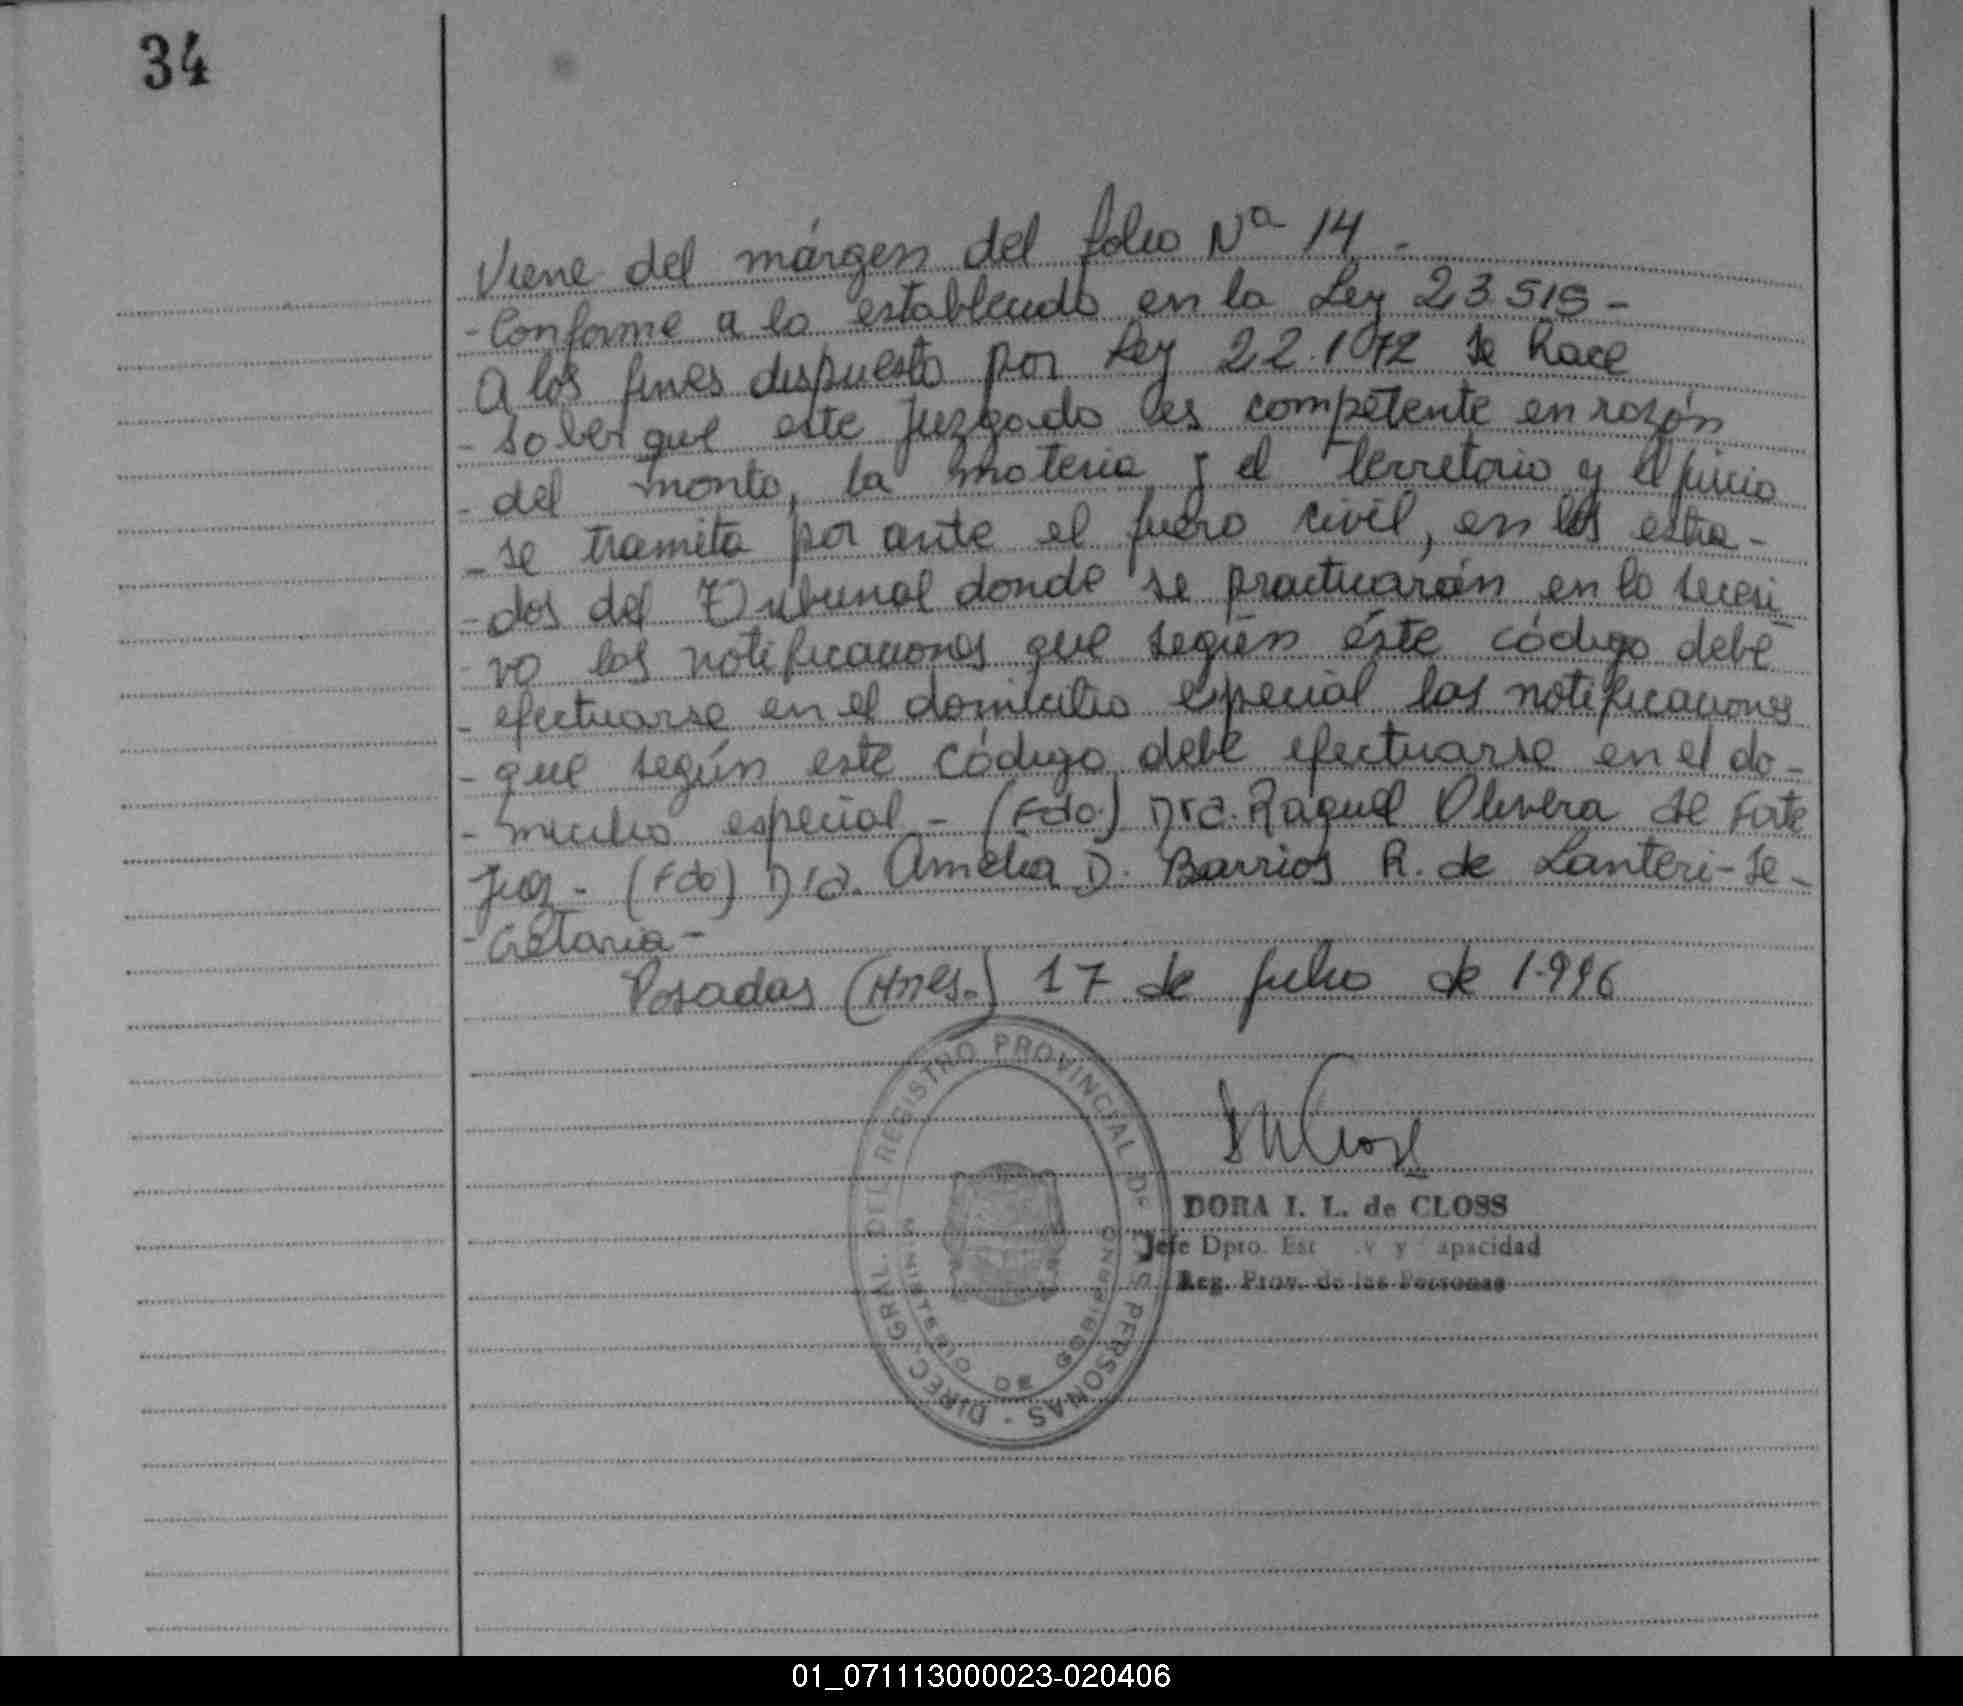 34
Viene del márgen del folio Nº 14 -
- Conforme a lo establecido en la Ley 23 515 -
A los fines dispuesto por Ley 22.172 se hace
- saber que este Juzgado es competente en razón
- del monto, la materia y el territorio y el juicio
- se tramita por ante el fuero civil, en los estra-
- dos del Tribunal donde se practicarán en lo sucesi
- vo las notificaciones que según éste código debe
- efectuarse en el domicilio especial las notificaciones
- que según este código debe efectuarse en el do-
- micilio especial - (Fdo.) Dra. Raquel Olivera de Forte
Juez - (Fdo) Dra. Amelia D. Barrios R. de Lanteri - Se-
- cretaria -
Posadas (Mnes.) 17 de Julio de 1.996
DIREC. GRAL. DEL REGISTRO PROVINCIAL DE PERSONAS -
MINISTERIO DE GOBIERNO
DORA I. L. de CLOSS
Jefe Dpto. Est v y apacidad
Reg. Prov. de las Personas
01_071113000023-020406